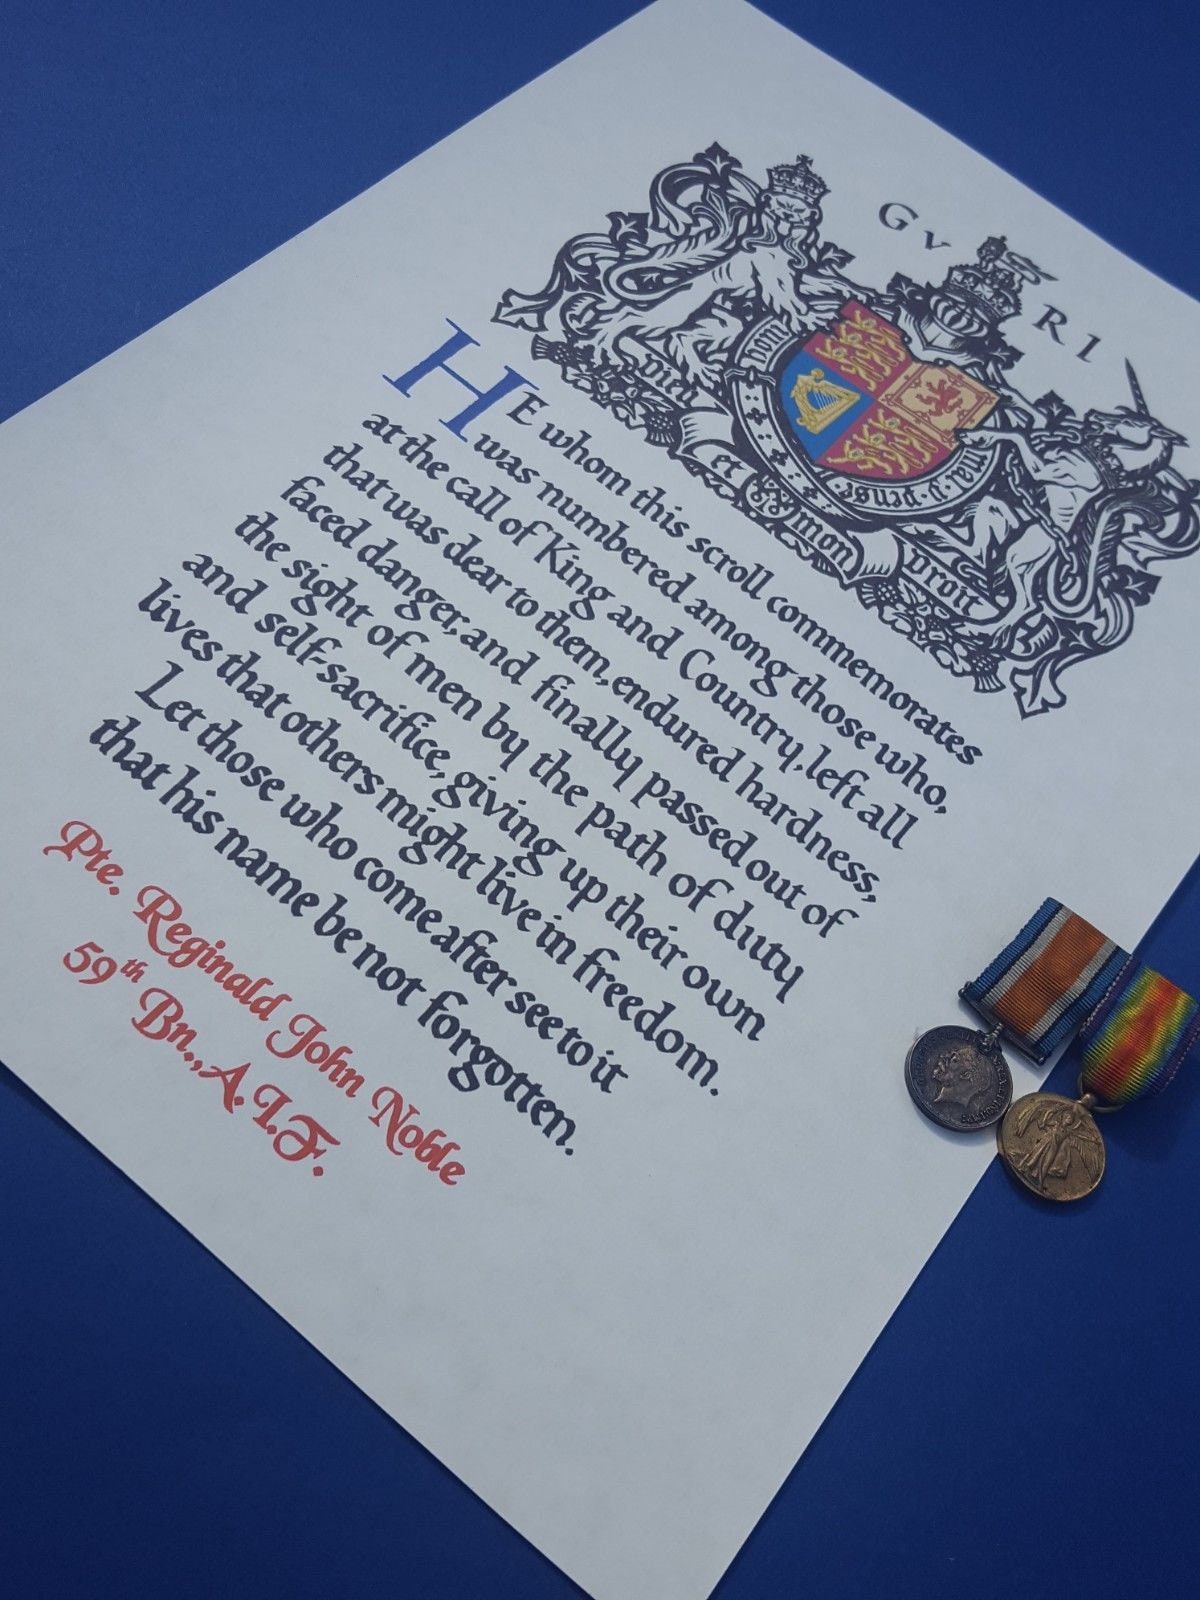 GV RI
honi
mal·y·pense
Dieu et mon Droit
HE whom this scroll commemorates
was numbered among those who,
at the call of King and Country, left all
that was dear to them, endured hardness,
faced danger, and finally passed out of
the sight of men by the path of duty
and self-sacrifice, giving up their own
lives that others might live in freedom.
Let those who come after see to it
that his name be not forgotten.
Pte. Reginald John Noble
59th Bn., A.I.F.